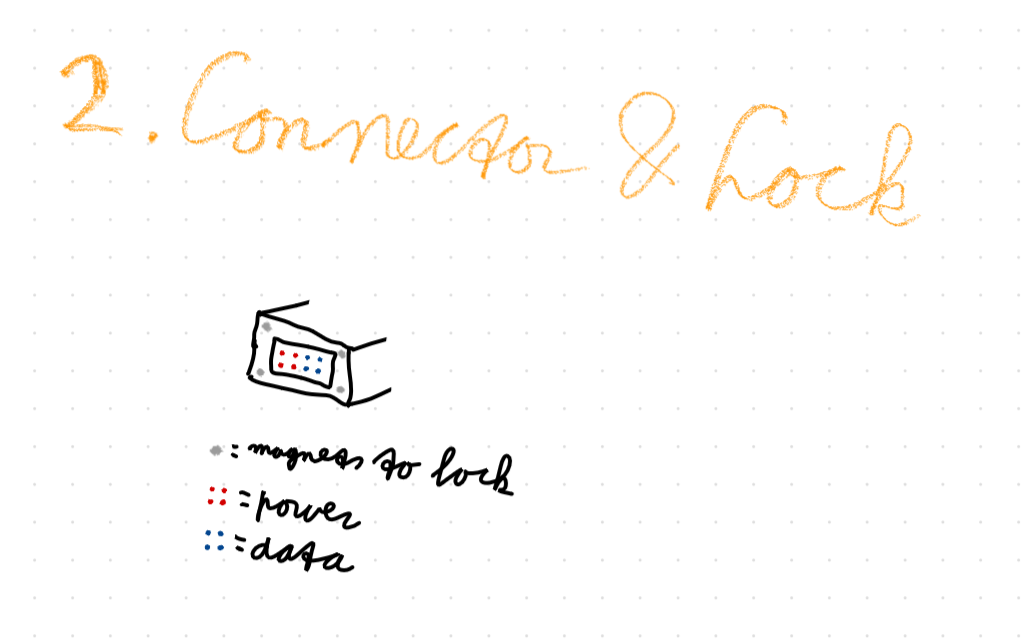 2. Connector & Lock
= magnets to lock
= power
= data